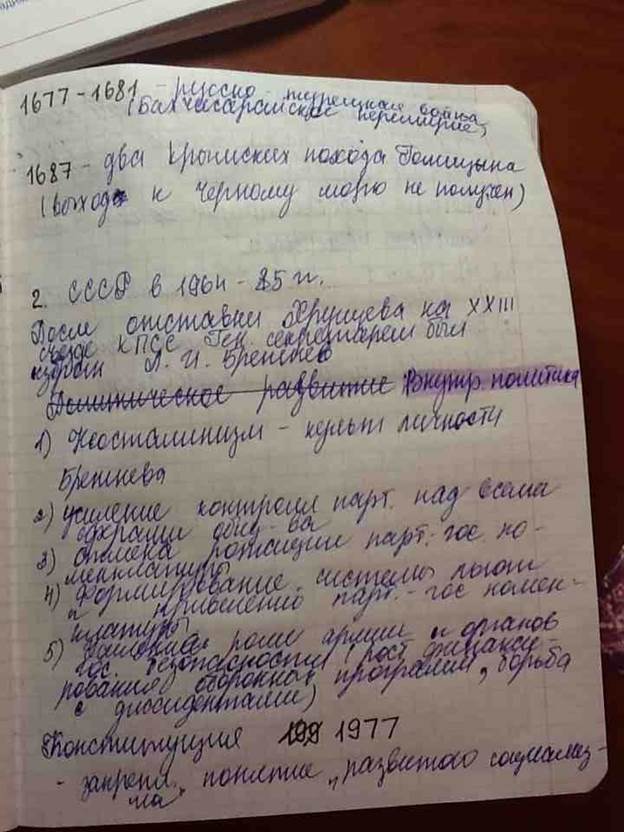 1677-1681 - русско-турецкая война
(Бахчисарайское перемирие)
1687 - два Крымских похода Голицына
(выход к Черному морю не получен)
2. СССР в 1964-85 гг.
После отставки Хрущева на XXIII
съезде КПСС Ген. секретарем был
избран Л. И. Брежнев
Политическое развитие Внутр. политика
1) Неосталинизм - культ личности
Брежнева
2) усиление контроля парт. над всеми
сферами общ-ва
3) отмена ротации парт.-гос. но-
менклатуры
4) Формирование системы льгот
и привилегий парт.-гос номен-
клатуры
5) Усиление роли армии и органов
гос. безопасности (рост финанси-
рования оборонных программ, борьба
с диссидентами)
Конституция 1977
- закрепл. понятие "развитого социализ-
ма